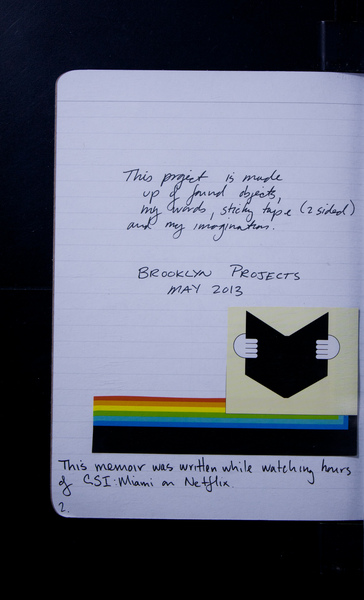 This project is made
up of found objects,
my words, sticky tape (2 sided)
and my imagination.
BROOKLYN PROJECTS
MAY 2013
This memoir was written while watching hours
of CSI: Miami on Netflix.
2.